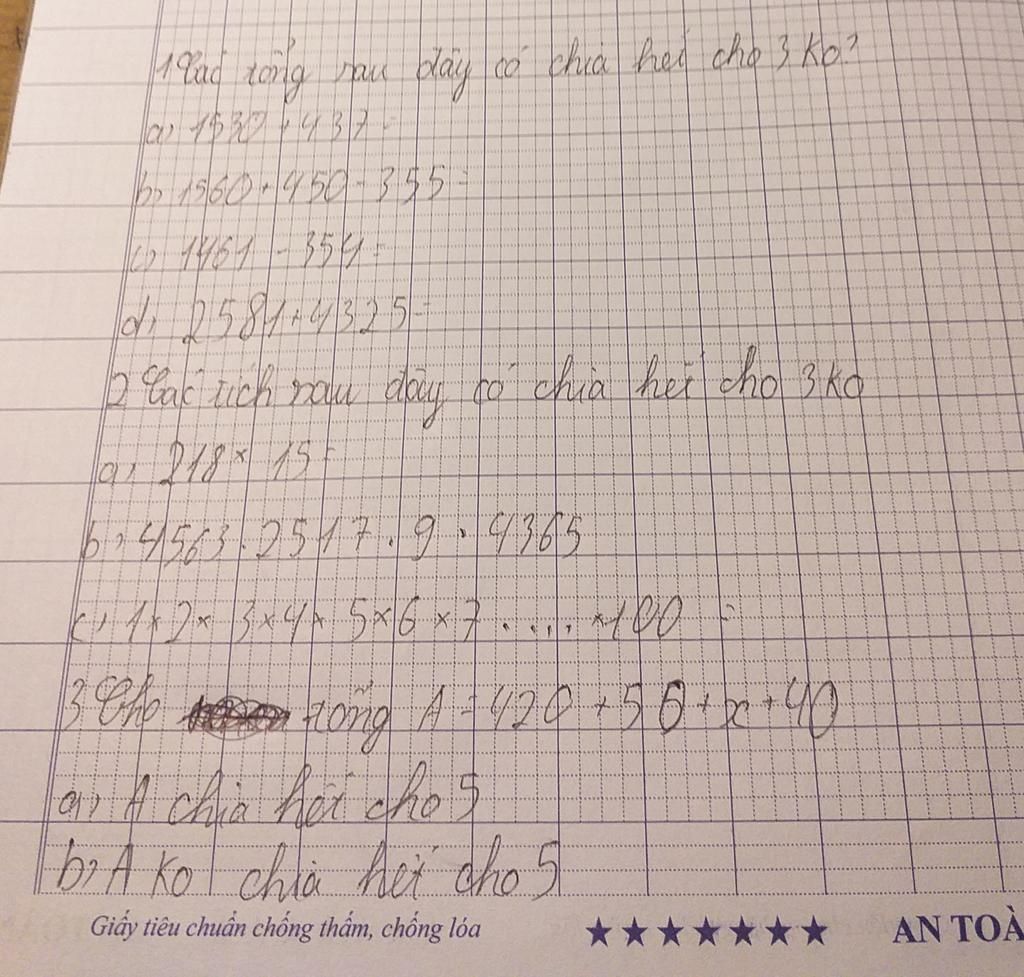 1 Các tổng sau đây có chia hết cho 3 ko?
a) 1530 + 437 =
b) 1560 + 450 - 355 =
c) 1461 - 354 =
d) 2581 + 4325 =
2 Các tích sau đây có chia hết cho 3 ko
a) 218 × 15 =
b) 4563 . 2517 . 9 . 4365
c) 1 × 2 × 3 × 4 × 5 × 6 × 7 .... × 100 =
3 Cho tổng A = 420 + 50 + x + 40
a) A chia hết cho 5
b) A ko chia hết cho 5
Giấy tiêu chuẩn chống thấm, chống lóa
★★★★★★★ AN TOÀ